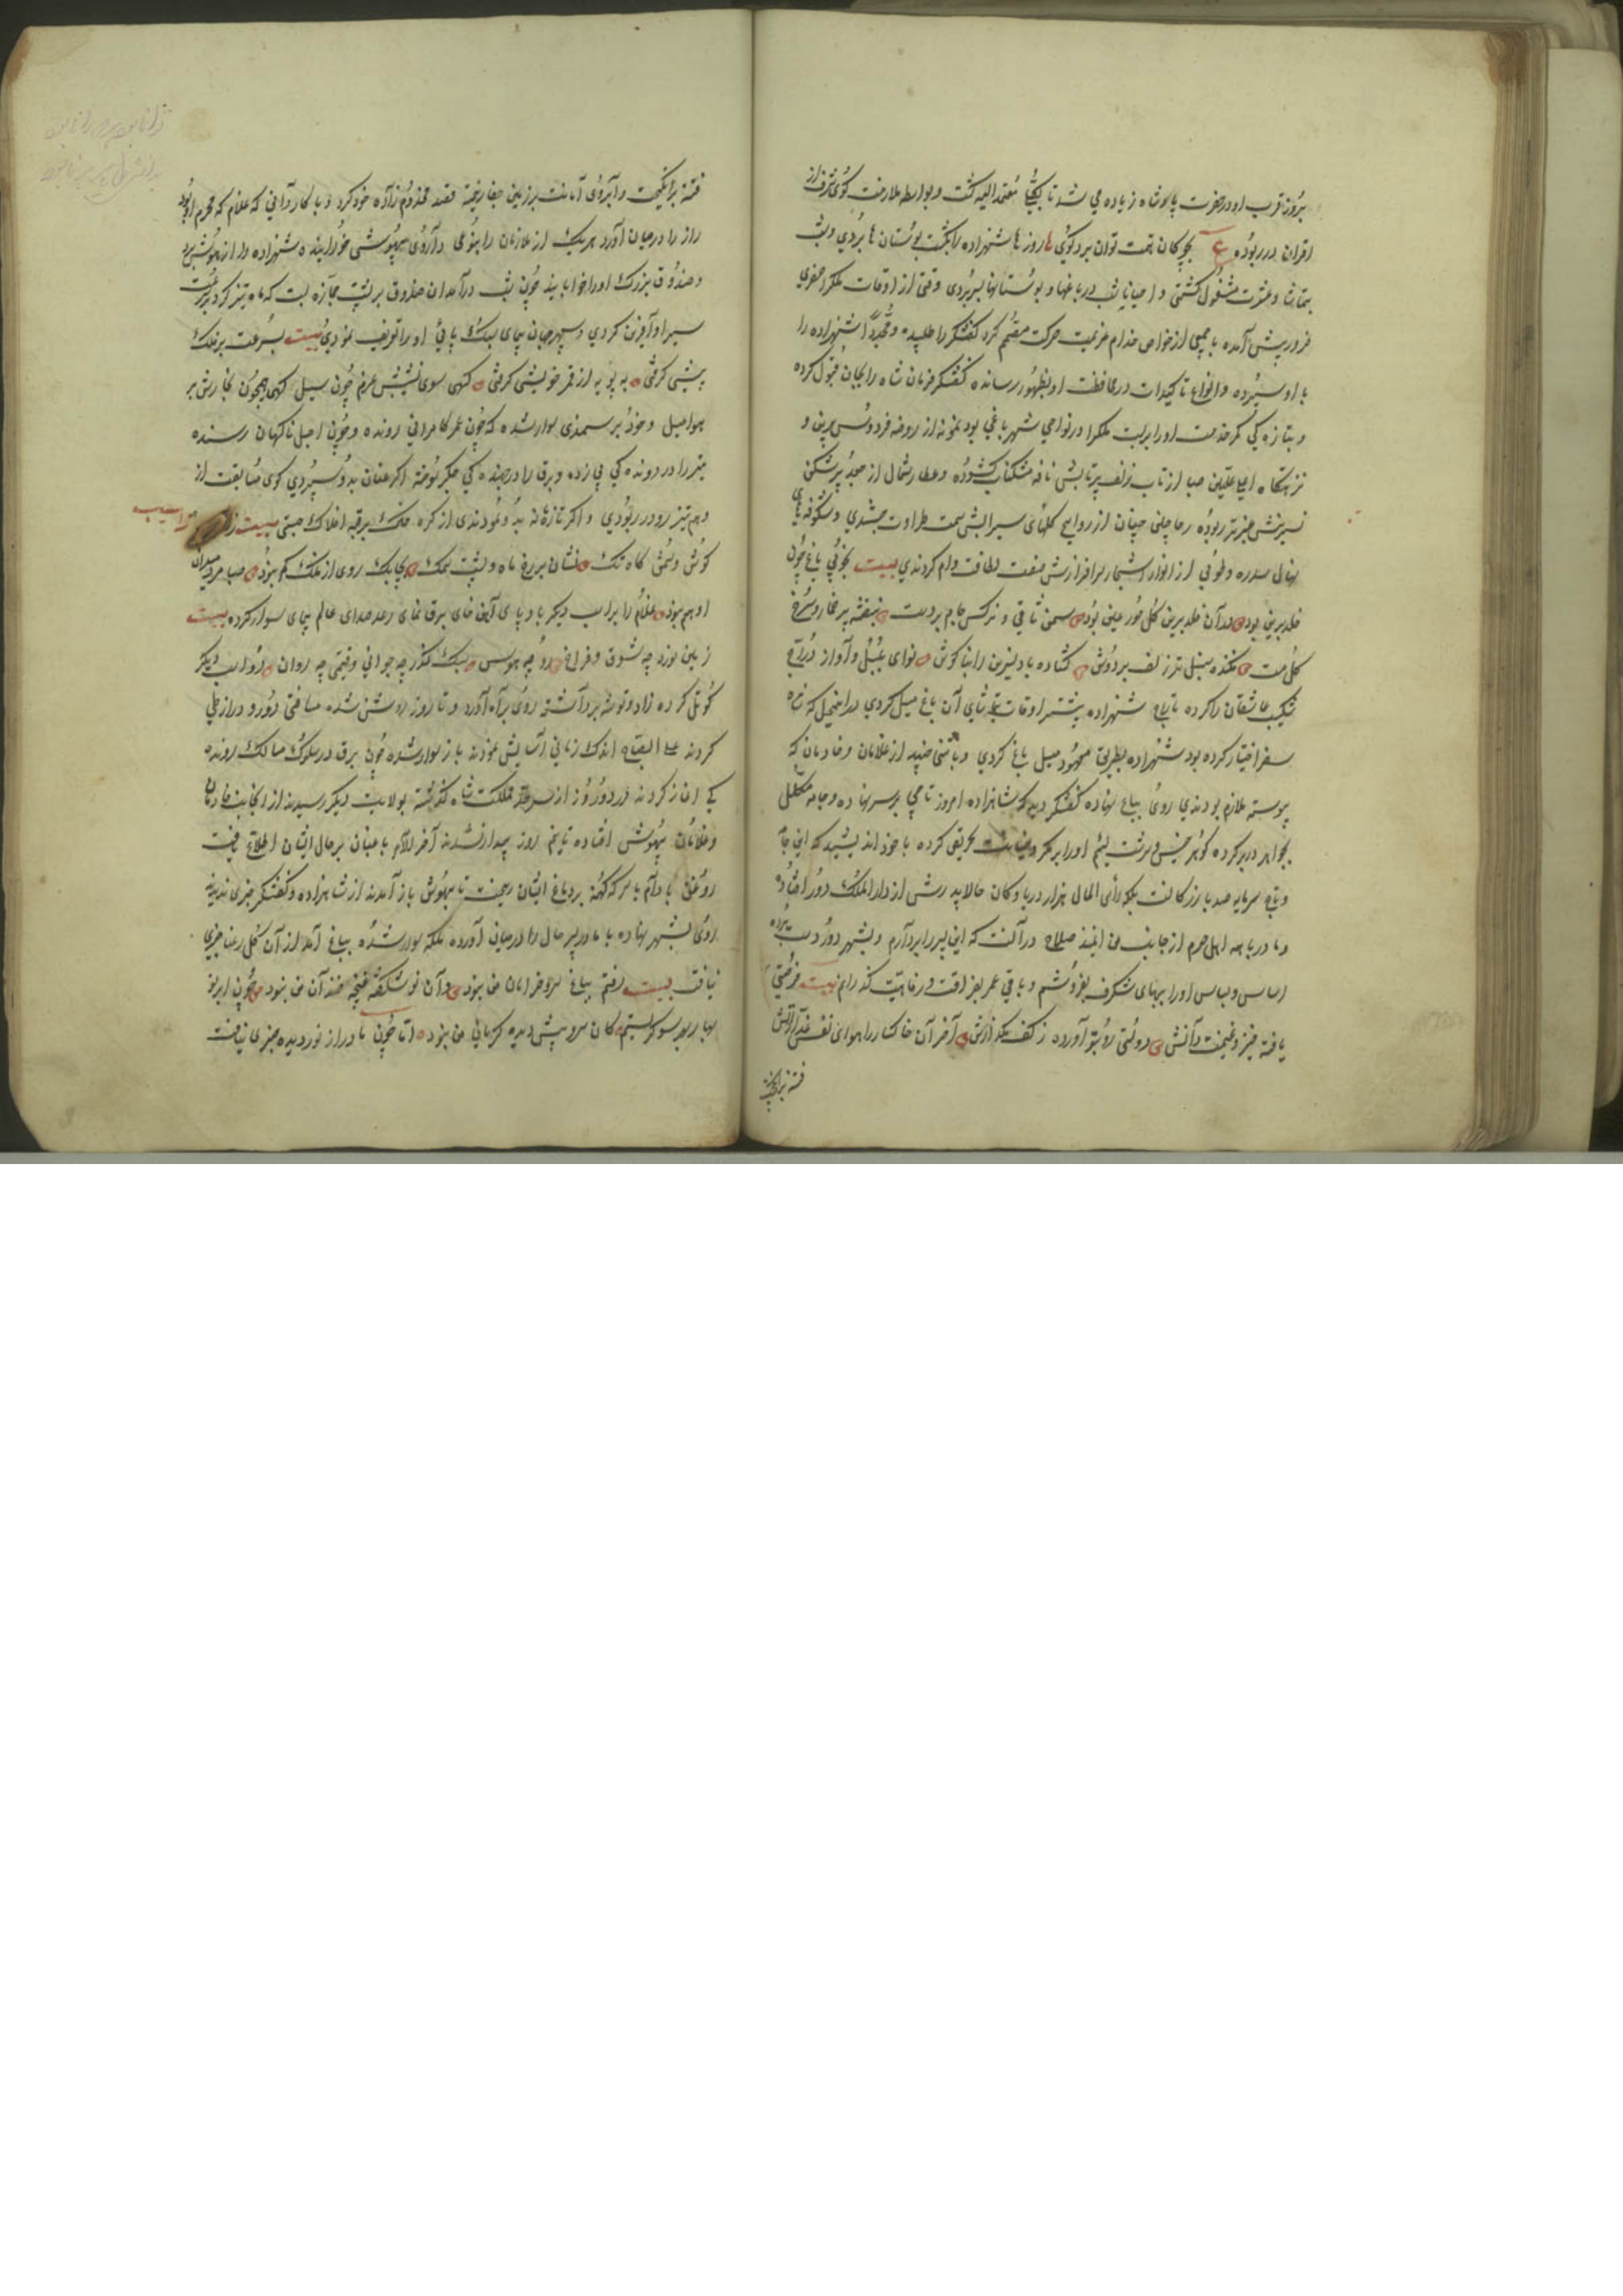 بروز قرب او در حضرت پادشاه زیاده می شد تا بکلّی معتمد الیه گشت و بواسطه ملازمت گوی شرف از
اقران در ربوده ع بچوکان همت توان برد گوی ها روزها شهزاده را بگشت بوستان ها بردی و بشب
بتماشا و عشرت مشغول گشتی و احیانا شب در باغها و بوستانها بسر بردی وقتی از اوقات ملک را سفری
ضرور پیش آمده با جمعی از خواص خدام عزیمت حرکت مصمم کرد کفشگر را طلبیده و مجددا شهزاده را
باو سپرده و انواع تاکیدات در محافظت او بظهور رسانده کفشگر فرمان شاه را بجان قبول کرده
و بتازه گی کمر خدمت او را بر بست ملک را در نواحی شهر باغی بود نمونه از روضه فردوس برین و
نزهتگاه اعلا علیین صبا از تاب زلف پرتابش نافه مشکناب گشوده و عطار شمال از جعد پرشکن
نسرینش عنبر تر ربوده ریاحین جنان از روایح گلهای سیرابش سمت طراوت جستندی و شکوفه های
نهال سدره و طوبی از انوار اشجار سرافرازش صفت لطافت وام کردندی بیت بخوبی باغ چون
خلد برین بود در آن خلد برین گل حور عین بود سمن ساقی و نرگس جام بر دست بنفشه پر خمار و سرخ
گل مست فکنده سنبل تر زلف بر دوش گشاده باد نسرین را بناگوش نوای بلبل و آواز دراج
شکیب عاشقان را کرده تاراج شهزاده بیشتر اوقات بتماشای آن باغ میل کردی در این محل که شاه
سفر اختیار کرده بود شهزاده بطریق معهود میل باغ کردی و با تنی چند از غلامان و خادمان که
پیوسته ملازم بودندی روی بباغ نهاده کفشگر دید که شاهزاده امروز تاجی بر سر نهاده و جامه مکلل
بجواهر در بر کرده گوهر خسیس و سرشت لئیم او را بر مکر و خیانت تحریص کرده با خود اندیشید که این جامه
و تاج سرمایه صد بازرگانست بلکه رأس المال هزار دریا و کان حالا پدرش از دار الملک دور افتاده
و مادر با همه اهل حرم از جانب من ایمنند صلاح در آنست که این پسر را بردارم و بشهر دور دست برده
اساس و لباس او را ببهای شگرف بفروشم و باقی عمر بفراغت و رفاهیت گذرانم بیت فرصتی
یافته خیز و غنیمت دانش دولتی رو بتو آورده ز کف مگذارش آخر آن خاکسار را هوای نفس غدار آتش
فتنه برانگیخت
فتنه برانگیخت و آبروی امانت بر زمین جفا ریخته قصد مخدوم زاده خود کرد و با کاردانی که غلام که محرم او بود
راز را در میان آورد هر یک از ملازمان را بنوعی داروی بیهوشی خوراینده شهزاده را از هوش برد
و صندوق بزرگ او را خوابانید چون شب درآمد آن صندوق بر پشت جمازه بست که ماه تیز گرد بر سرعت
سیر او آفرین کردی و سپهر جهان پیمای سبک پائی او را توصیف نمودی بیت بسرعت بر فلک
پیشی گرفتی به پویه از قمر خویشی گرفتی گهی سوی نشیبش عزم چون سیل گهی همچون بخارش بر
هوا میل و خود بر سمندی سوار شده که چون عمر کامرانی رونده و چون اجل ناگهان رسنده
تیر را در دونده گی پی زده و برق را در جهنده گی جگر سوخته اگر عنان بدو سپردی گوی مسابقت از
وهم تیز رو در ربودی و اگر تازیانه بدو نمودندی از کره خاک برقبه افلاک جستی بیت
گوش و سمش گاه تک فشان بر رخ ماه و پشت سمک بچابک روی از فلک کم نبود صبا مرد میدان
او هم نبود غلام را بر اسب دیگر باد پای آهن خای برق نمای رعد صدای عالم پیمای سوار کرده بیت
زمین نورد چه شوق و فراخ رو چه هوس سبک گذر چه جوانی و قیمتی چه روان دو اسب دیگر
کوتل کرده زاد و توشه برداشته روی براه آورد و تا روز روشن شده مسافتی دور و دراز طی
کردند علی الصباح اندک زمانی آسایش نموده باز سوار شده چون برق در سلوک مسالک رونده
گی آغاز کردند در دو روز از سرحد مملکت شاه گذشته بولایت دیگر رسیدند از اینجانب خادمان
و غلامان بیهوش افتاده تا نیم روز بیدار نشدند آخر الامر باغبان بر حال ایشان اطلاع یافت
روغن بادام با سرکه کهنه بر دماغ ایشان ریخت تا بهوش باز آمدند از شاهزاده و کفشگر خبری ندیدند
روی بشهر نهاده با مادر پسر حال را در میان آورده ملکه سوار شده بباغ آمد از آن گل رعنا خبری
نیافت بیت رفتم بباغ سرو خرامان من نبود و آن نو شکفته غنچه خندان من نبود چون ابر نو
بهار بهر سو گریستم کان سرو پیش دیده گریان من نبود اما چون مادر از نور دیده خبری نیافت